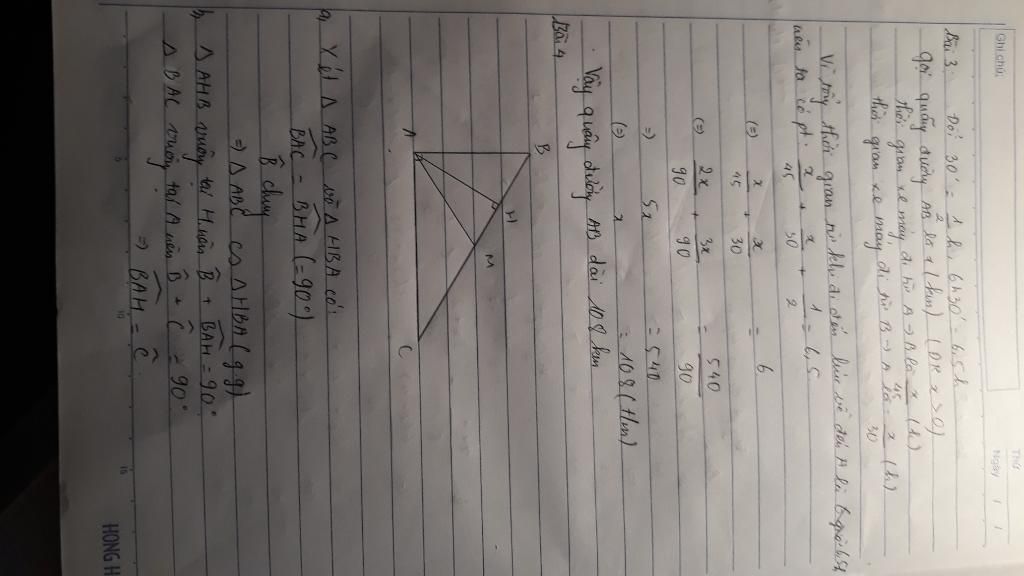 Ghi chú:
Thứ
Ngày / /
Bài 3. Đổi 30' = 1/2 h, 6h30' = 6,5h
Gọi quãng đường AB là x (km) (ĐK x > 0)
thời gian xe máy đi từ A → B là x/45 (h)
thời gian xe máy đi từ B → A là x/30 (h)
Vì thời gian từ khi đi đến lúc về đến A là
nên ta có pt: x/45 + x/30 + 1/2 = 6,5
(=) x/45 + x/30 = 6
(=) 2x/90 + 3x/90 = 540/90
=) 5x = 540
(=) x = 108 (t/m)
Vậy quãng đường AB dài 108 km
Bài 4
B
H
M
A
C
a, Xét Δ ABC và Δ HBA có:
BAC = BHA (= 90°)
B chung
=> Δ ABC ∽ Δ HBA (g.g)
b, Δ AHB vuông tại H nên B + BAH = 90°
Δ BAC vuông tại A nên B + C = 90°
=> BAH = C
5
10
15
HONG H